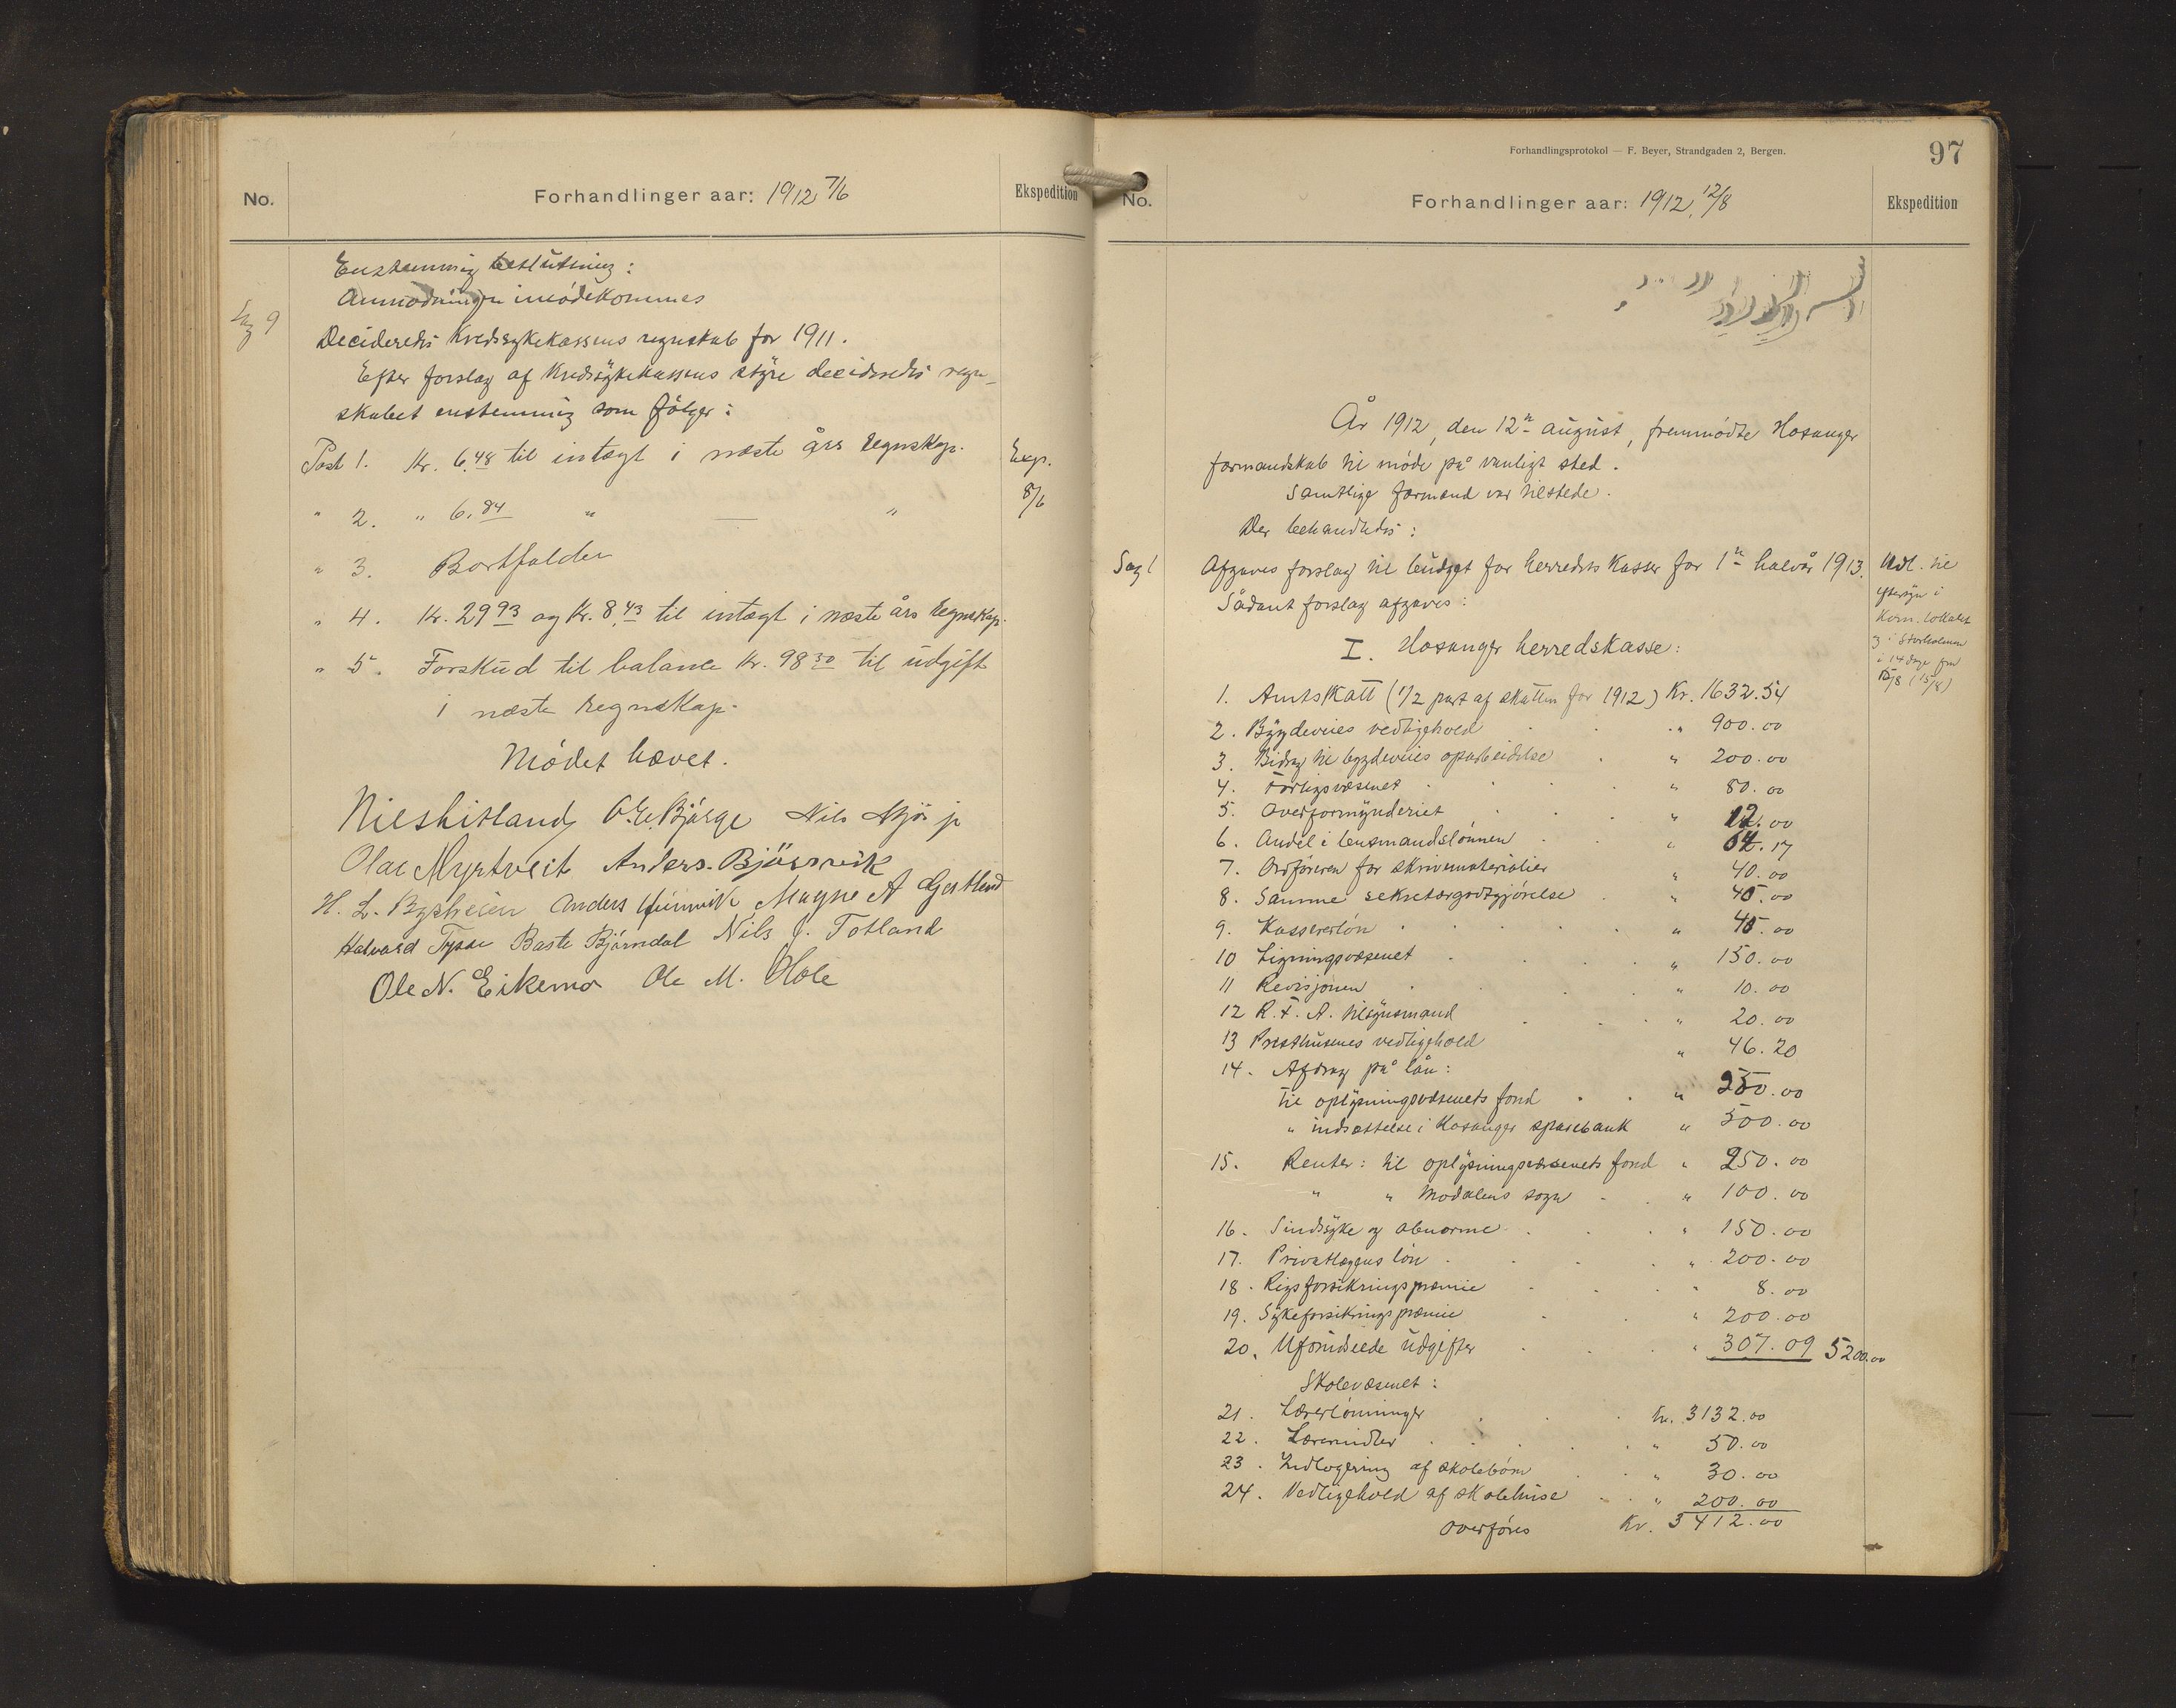 No.
Forhandlinger aar: 1912 7/6
Ekspedition
Enstemmig beslutning:
Anmodningen imødekommes
Sag 9
Decideredes Kredssykekassens regnskab for 1911.
Efter forslag af Kredssykekassens styre decideredes regn-
skabet enstemmig som følger:
Post 1. Kr. 6.48 til intægt i næste års regnskap.
Exp.
" 2. " 6.84 " — "
8/6
" 3. Bortfalder
" 4. Kr. 29 93 og Kr. 8,43 til intægt i næste års regnskap.
" 5. Forskud til balance Kr. 98 30 til udgift
i næste regnskap.
Mødet hævet.
Nils Litland O. E. Bjørge Nils Mjøs jr
Olai Myrtveit Anders Bjørsvik
H. L. Bysheim Anders Magne A
Halvard Tysse Baste Bjørndal Nils J. Totland
Ole N. Eikemo Ole M. Hole
Forhandlingsprotokol — F. Beyer, Strandgaden 2, Bergen.
97
No.
Forhandlinger aar: 1912, 12/8
Ekspedition
År 1912, den 12n august, fremmødte Hosanger
formandskab til møde på vanligt sted.
Samtlige formænd var tilstede.
Der behandledes:
Sag 1
Afgaves forslag til budget for herredets kasser for 1n halvår 1913.
Sådant forslag afgaves:
Udl. til
eftersyn i
Kom. lokalet
og i Storholmen
i 14 dage fra
15/8 (15/8)
I. Hosanger herredskasse:
1. Amtskatt (1/2 part af skatten for 1912) Kr. 1632.54
2. Bygdeveies vedligehold " 900.00
3. Bidrag til bygdeveies oparbeidelse " 200.00
4. Forligsvæsenet " 80.00
5. Overformynderiet " 12.00
6. Andel i lensmandslønnen " 54.17
7. Ordføreren for skrivematerialier " 40.00
8. Samme sekretærgodtgjørelse " 45.00
9. Kassererløn " 45.00
10 Ligningsvæsenet " 150.00
11 Revisjonen " 10.00
12 R. F. A. tilsynsmand " 20.00
13 Presthusenes vedligehold " 46.20
14. Afdrag på lån:
til oplysningsvæsenets fond " 250.00
" indsættelse i Hosanger sparebank " 500.00
15. Renter: til oplysningsvæsenets fond " 250.00
" " Modalens sogn " 100.00
16. Sindssyke og abnorme " 150.00
17. Privatlægens løn " 200.00
18. Rigsforsikringspræmie " 8.00
19. Sykeforsikringspræmie " 200.00
20. Uforudseede udgifter " 307.09 5200.00
Skolevæsenet:
21. Lærerlønninger Kr. 3132.00
22. Læremidler " 50.00
23. Indlogering af skolebørn " 30.00
24. Vedligehold af skolehuse " 200.00
Overføres Kr. 3412.00